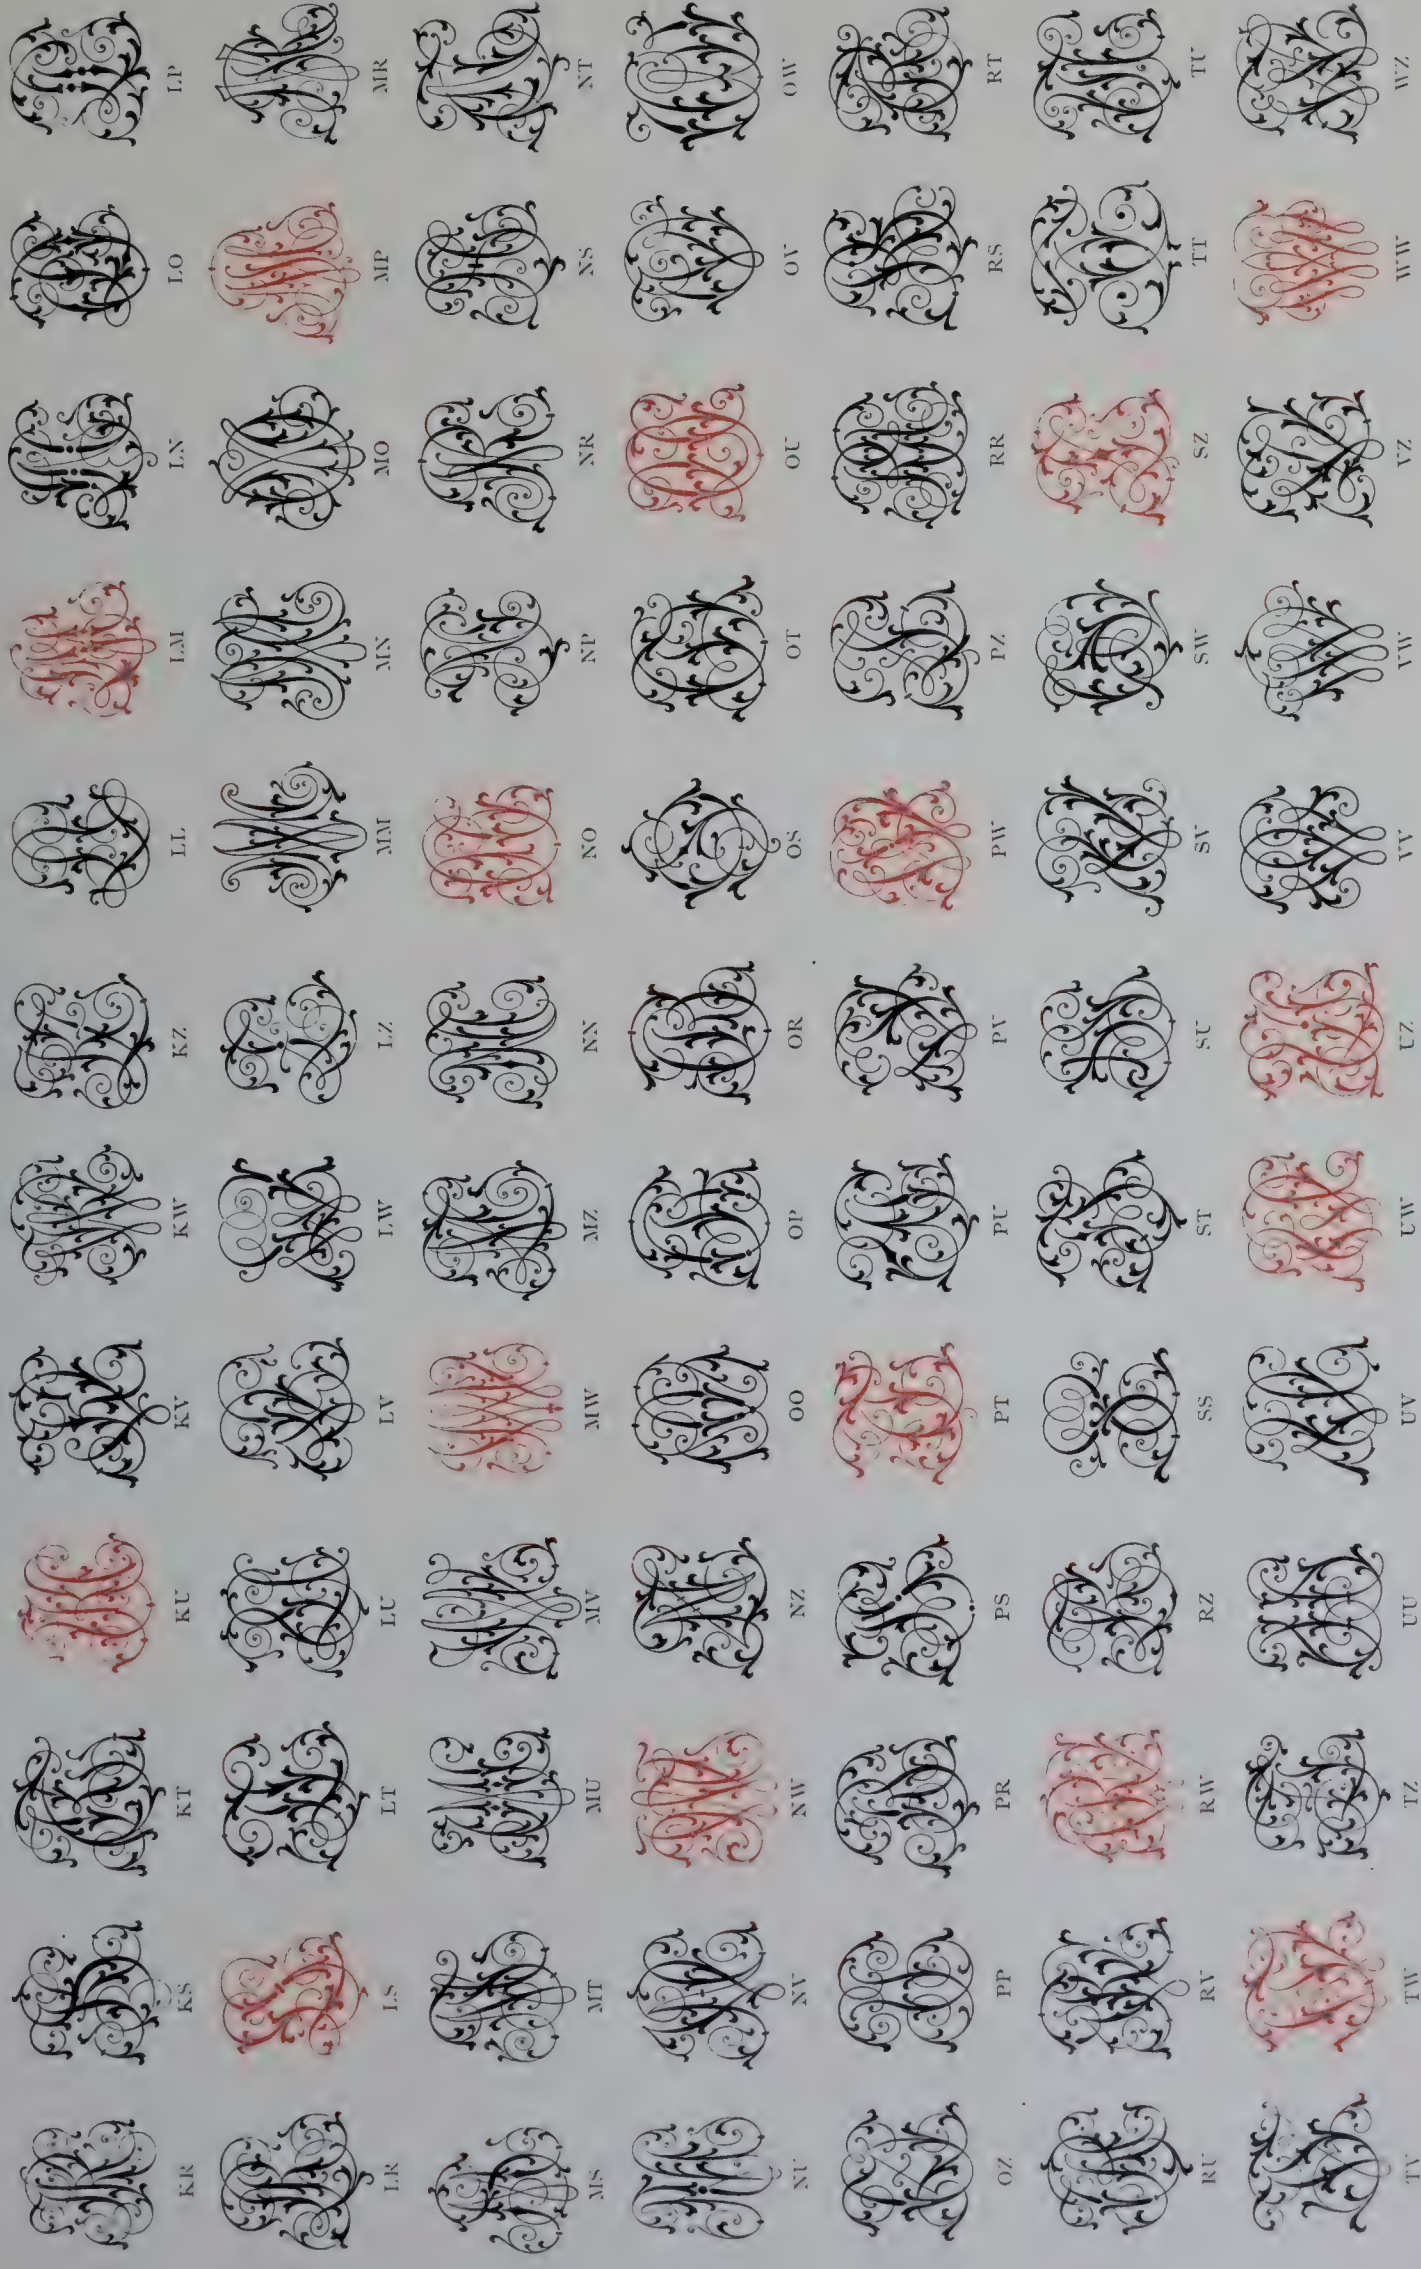 KR KS KT KU KV KW KZ LL LM LN LO LP
LR LS LT LU LV LW LZ MM MN MO MP MR
MS MT MU MV MW MZ NN NO NP NR NS NT
NU NV NW NZ OO OP OR OS OT OU OV OW
OZ PP PR PS PT PU PV PW PZ RR RS RT
RU RV RW RZ SS ST SU SV SW SZ TT TU
TV TW TZ UU UV UW UZ VV VW VZ WW WZ